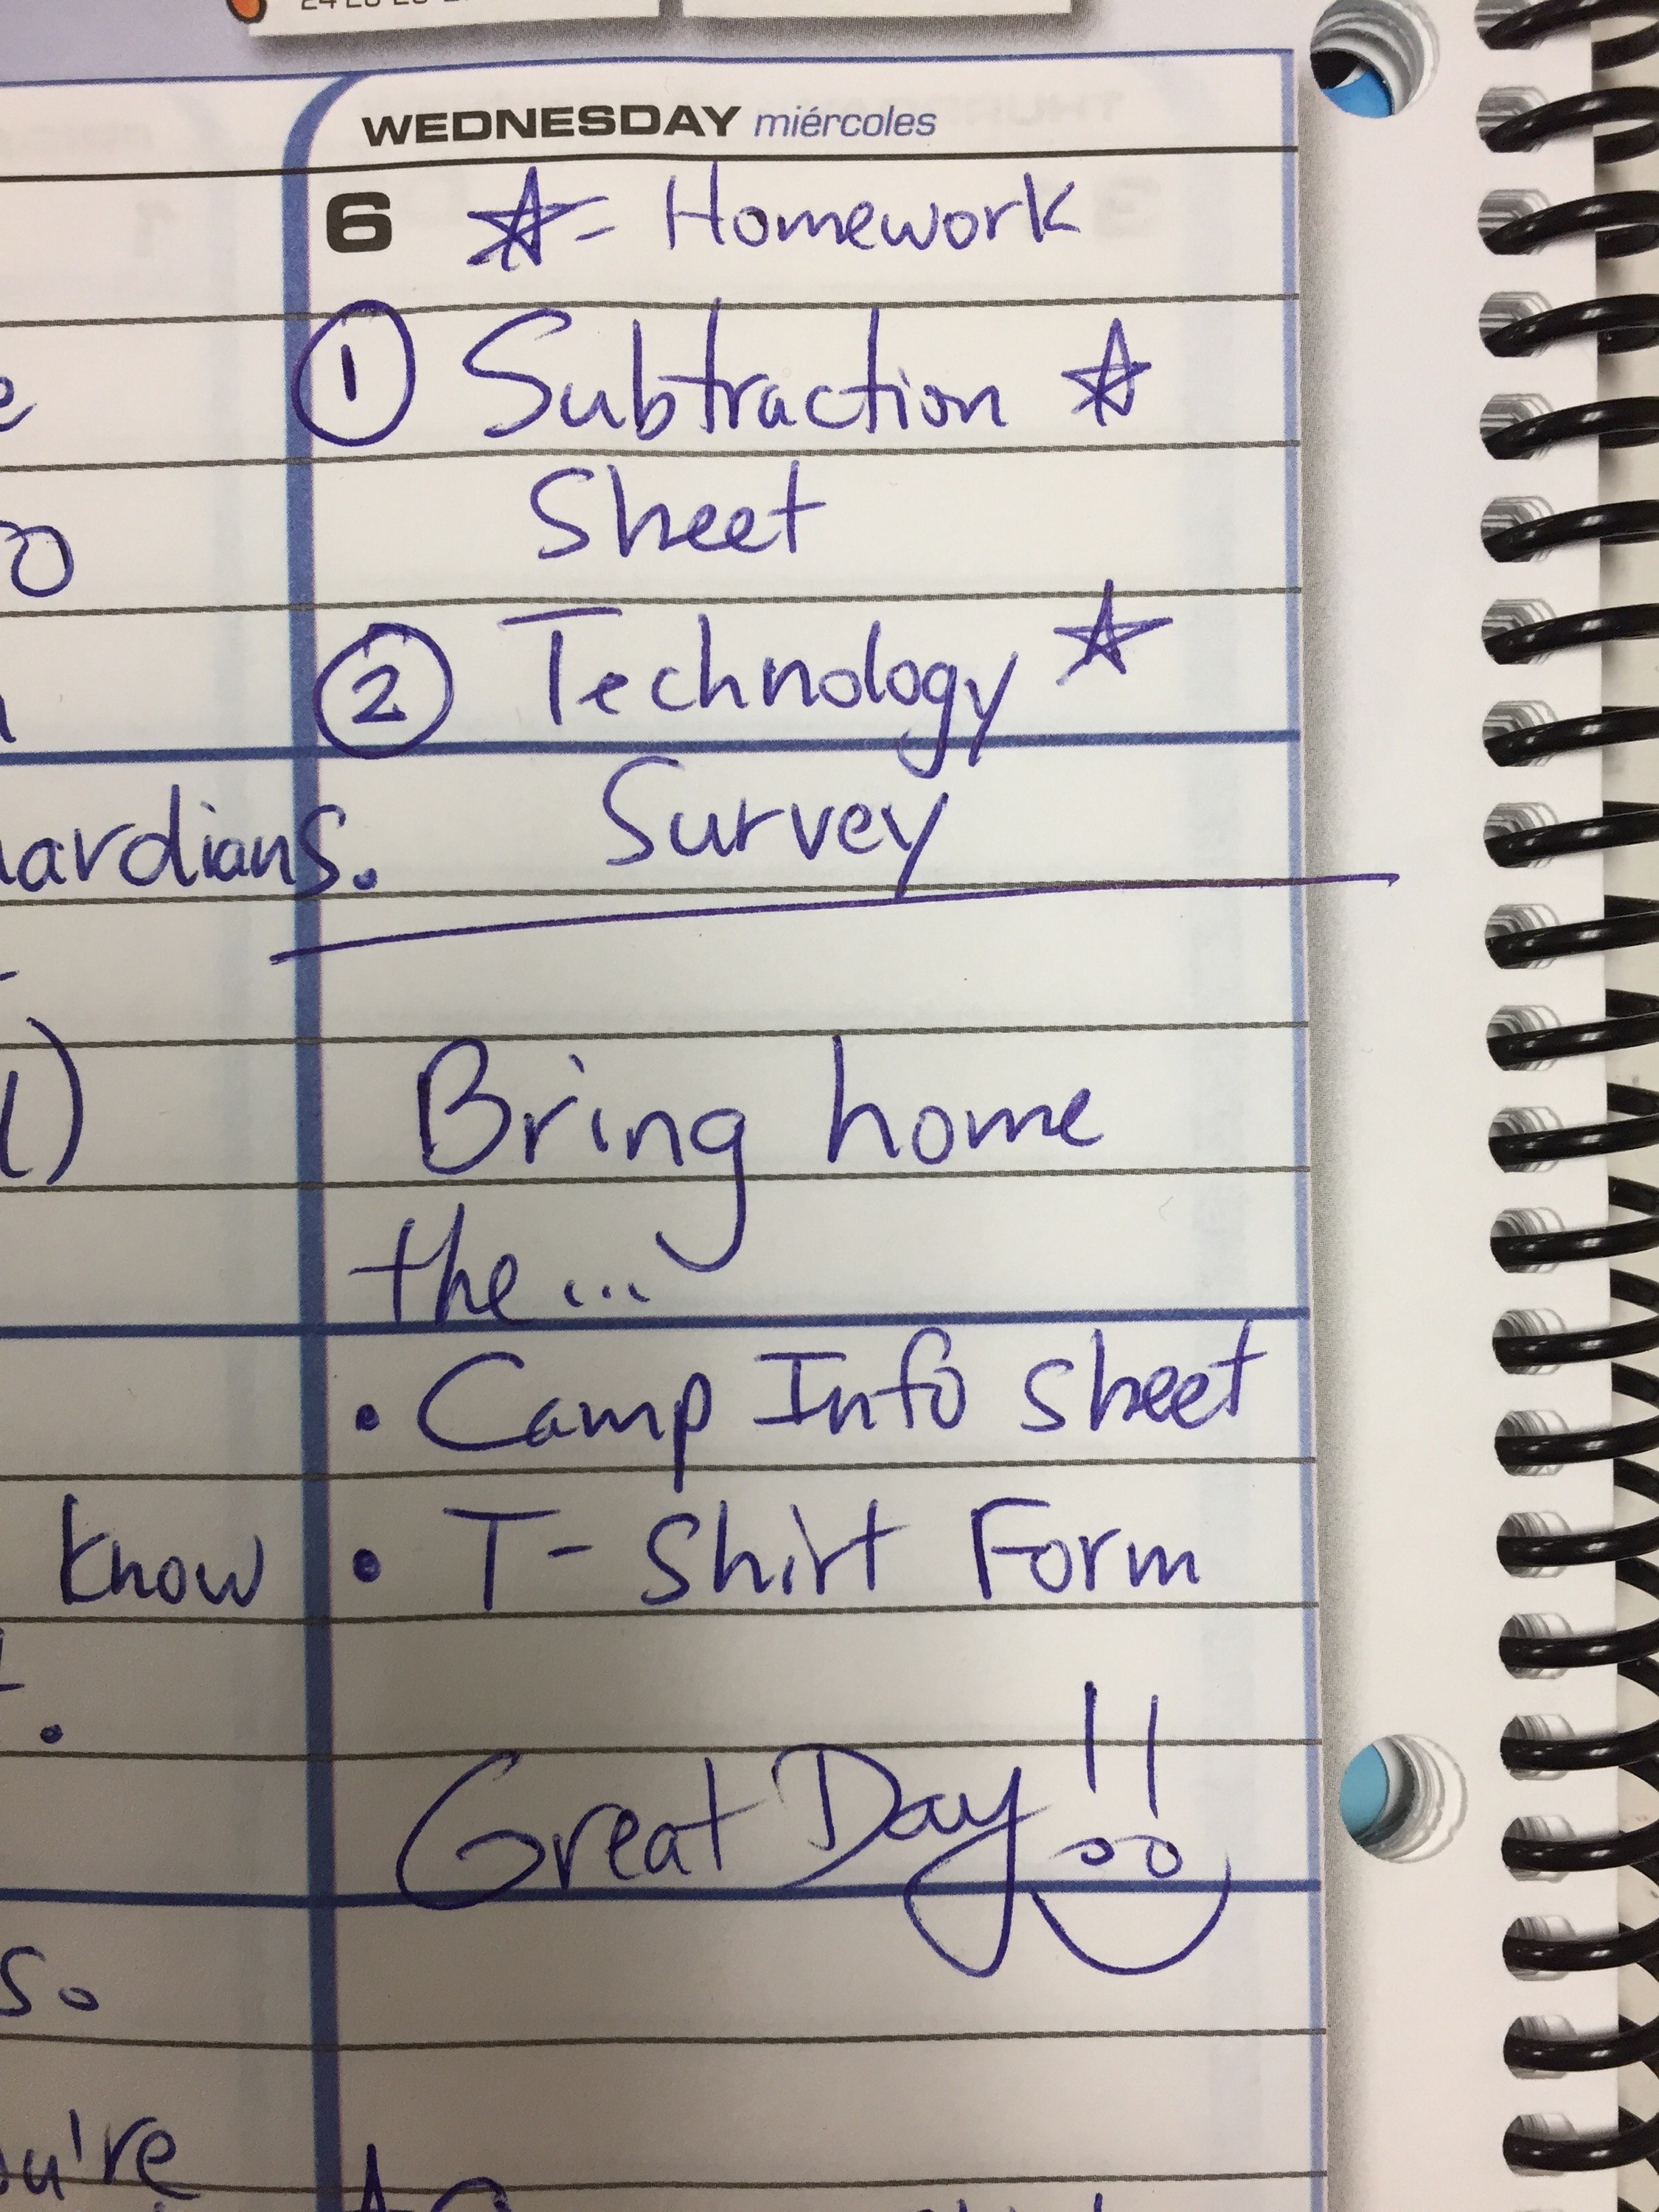 WEDNESDAY miércoles
6 ☆ - Homework
① Subtraction ☆
Sheet
② Technology ☆
Survey
Bring home
the...
• Camp Info sheet
• T-Shirt Form
Great Day!!
ardians.
know
so
u're